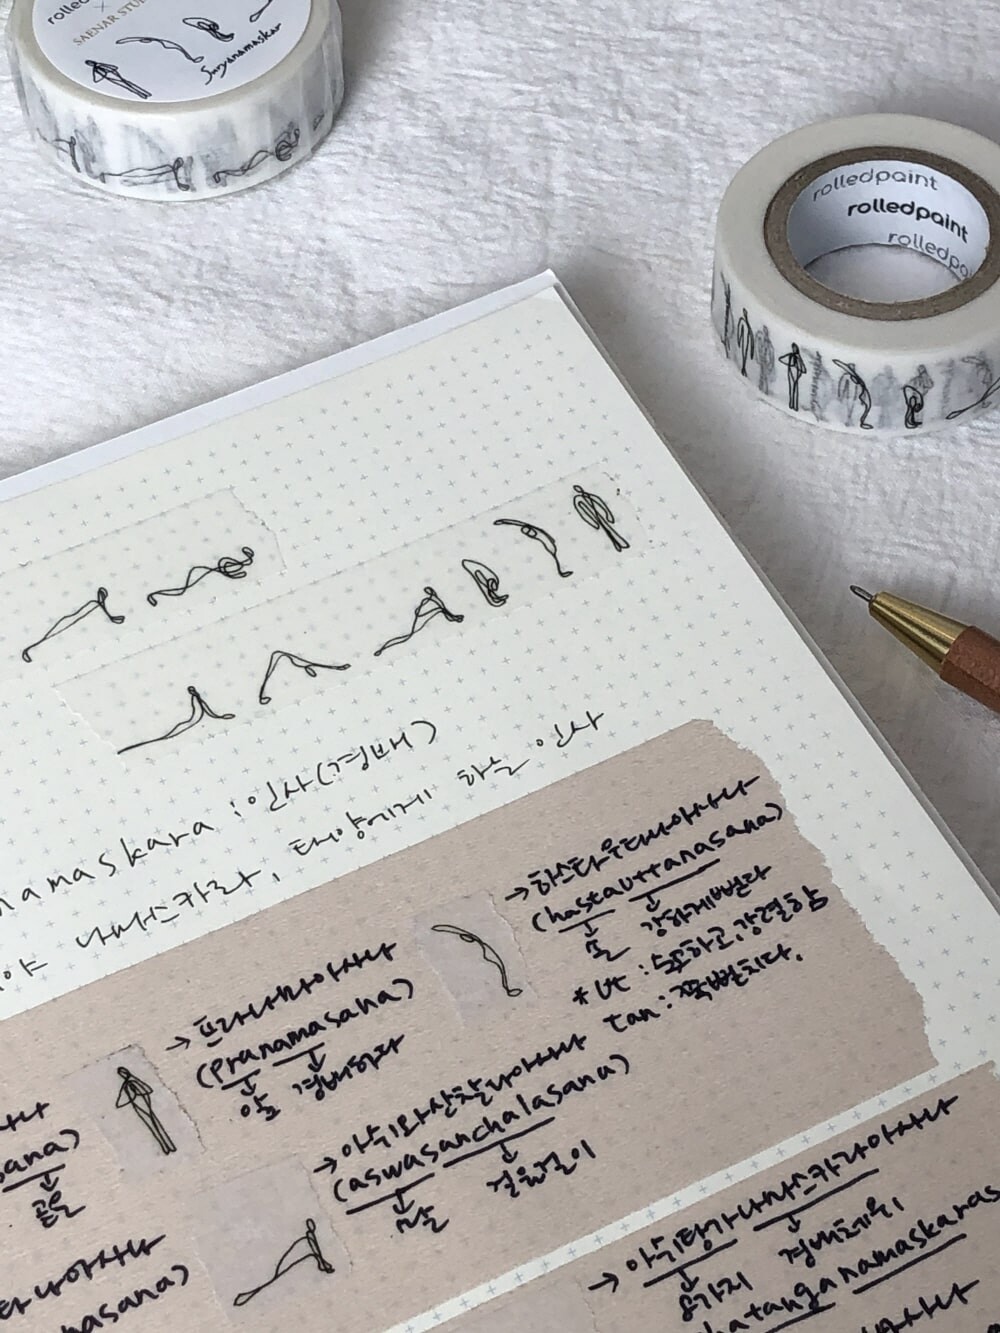 rolled
SAENAR STU
Suryanamaskar
rolledpaint
rolledpaint
rolledpa
namaskara : 인사(경배)
야 나마스카라, 태양에게 하는 인사
→ 하스타우타나아사나
(hastauttanasana)
손 강하게뻗다
* ut : 강렬함
tan : 쭉뻗치다.
→ 프라나마아사나
(pranamasana)
앞 경배하다
→ 아스와산찰라아사나
(aswasanchalasana)
말 걸음걸이
사나
sana)
곧은
타나아사나
asana)
→ 아쉬탕가나마스카라아사나
8가지 경배체위
hatanganamaskaras
아사나